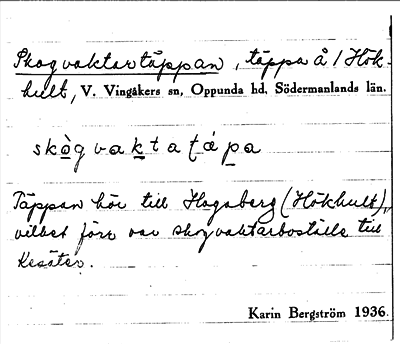 Skogvaktartäppan, täppa å 1 Hök-
hult, V. Vingåkers sn, Oppunda hd, Södermanlands län.
skògvaktatápa
Täppan hör till Hagaberg (Hökhult),
vilket förr var skogvaktarboställe till
Kesäter.
Karin Bergström 1936.